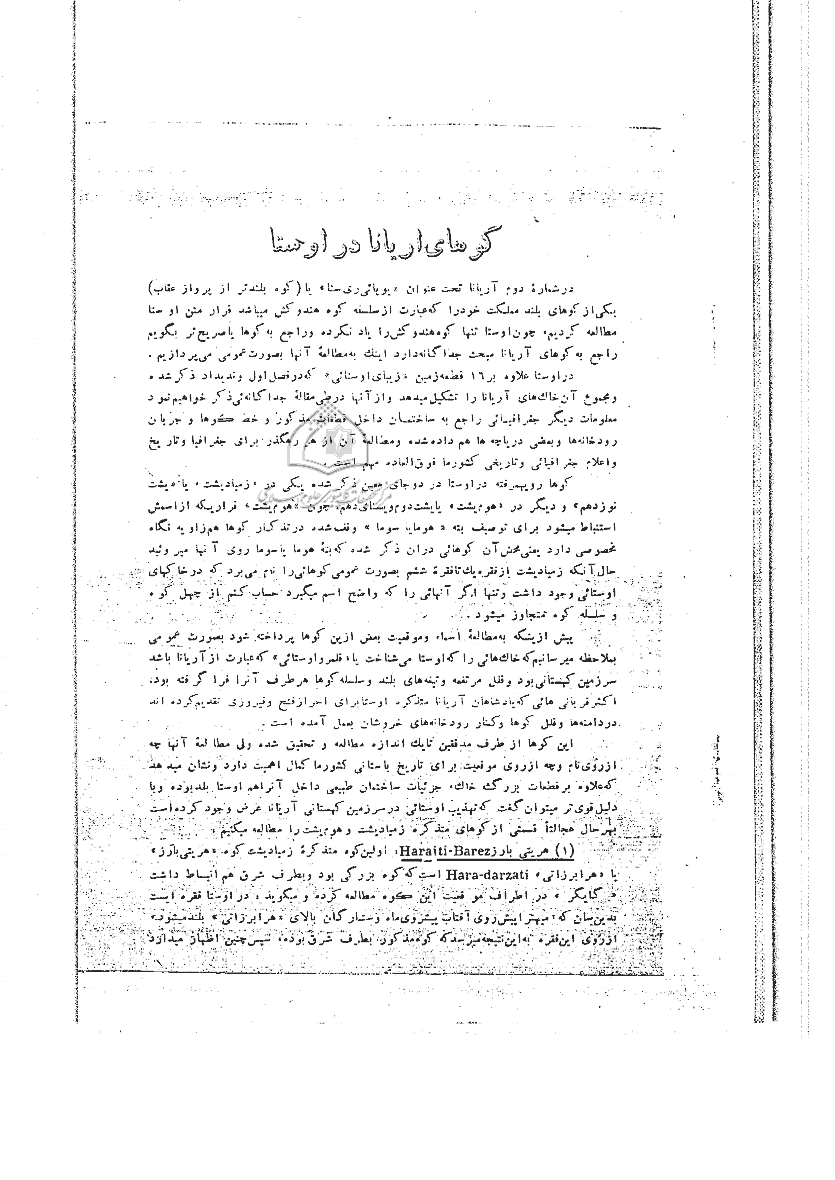 کوهای اریانا در اوستا
در شمارهٔ دوم آریانا تحت عنوان «یوپائی‌ری‌سنا» یا (کوه بلندتر از پرواز عقاب)
یکی از کوهای بلند مملکت خود را که عبارت از سلسله کوه هندوکش میباشد قرار متن اوستا
مطالعه کردیم، چون اوستا تنها کوه هندوکش را یاد نکرده و راجع به کوها یا صریح‌تر بگویم
راجع به کوهای آریانا مبحث جداگانه دارد اینك به مطالعهٔ آنها بصورت عمومی می‌پردازیم .
در اوستا علاوه بر ۱۶ قطعه زمین «زیبای اوستائی» که در فصل اول وندیداد ذکر شده
و مجموع آن خاك‌های آریانا را تشکیل میدهد و از آنها در طی مقالهٔ جداگانه‌ئی ذکر خواهیم نمود
معلومات دیگر جغرافیائی راجع به ساختمان داخل قطعات مذکور و خط کوها و جریان
رودخانه‌ها و بعضی دریاچه ها هم داده شده و مطالعهٔ آن از هر رهگذر برای جغرافیا و تاریخ
و اعلام جغرافیائی و تاریخی کشور ما فوق‌العاده مهم است .
کوها رویهمرفته در اوستا در دو جای معین ذکر شده یکی در «زمیادیشت» یا «یشت
نوزدهم» و دیگر در «هوم‌یشت» یا یشت دوم و یسنای دهم، چون «هوم‌یشت» قراریکه از اسمش
استنباط میشود برای توصیف بته «هوما یا سوما» وقف شده در تذکار کوها هم زاویه نگاه
مخصوصی دارد یعنی محض آن کوهائی در ان ذکر شده که بتهٔ هوما یا سوما روی آنها میروئید
حال آنکه زمیادیشت از فقره یك تا فقرهٔ ششم بصورت عمومی کوهائی را نام می‌برد که در خاکهای
اوستائی وجود داشت و تنها اگر آنهائی را که واضح اسم میگیرد حساب کنم از چهل کوه
و سلسله کوه متجاوز میشود .
پیش از ینکه به مطالعهٔ اسماء و موقعیت بعض ازین کوها پرداخته شود بصورت عمومی
بملاحظه میرسانیم که خاك‌هائی را که اوستا می‌شناخت یا «قلمرو اوستائی» که عبارت از آریانا باشد
سرزمین کهستانی بود و قلل مرتفعه و تیغه‌های بلند و سلسله کوها هر طرف آنرا فرا گرفته بود.
اکثر قربانی هائی که پادشاهان آریانا متذکره اوستا برای احراز فتح و فیروزی تقدیم کرده اند
در دامنه‌ها و قلل کوها و کنار رودخانه‌های خروشان بعمل آمده است .
این کوها از طرف مدققین تا یك اندازه مطالعه و تحقیق شده ولی مطالعهٔ آنها چه
از روی نام و چه از روی موقعیت برای تاریخ باستانی کشور ما کمال اهمیت دارد و نشان میدهد
که علاوه بر قطعات بزرگ خاك، جزئیات ساختمان طبیعی داخل آنرا هم اوستا بلد بوده و با
دلیل قوی‌تر میتوان گفت که تهذیب اوستائی در سرزمین کهستانی آریانا عرض وجود کرده است
بهر حال عجالتاً قسمتی از کوهای متذکره زمیادیشت و هوم‌یشت را مطالعه میکنیم .
(۱) هریتی بارز Haraiti-Barez: اولین کوه متذکرهٔ زمیادیشت کوه «هریتی بارز»
یا «هرابرزاتی» Hara-darzati است که کوه بزرگی بود و بطرف شرق هم انبساط داشت
« گایگر » در اطراف موقعیت این کوه مطالعه کرده و میگوید: در اوستا فقره است
بدین سان که: «میهترا پیش روی آفتاب پیشروی ماه و ستارگان بالای «هرابرزاتی» بلند میشود»
از روی این فقره به این نتیجه میرسد که کوه مذکور، بطرف شرق بوده، سپس چنین اظهار میدارد